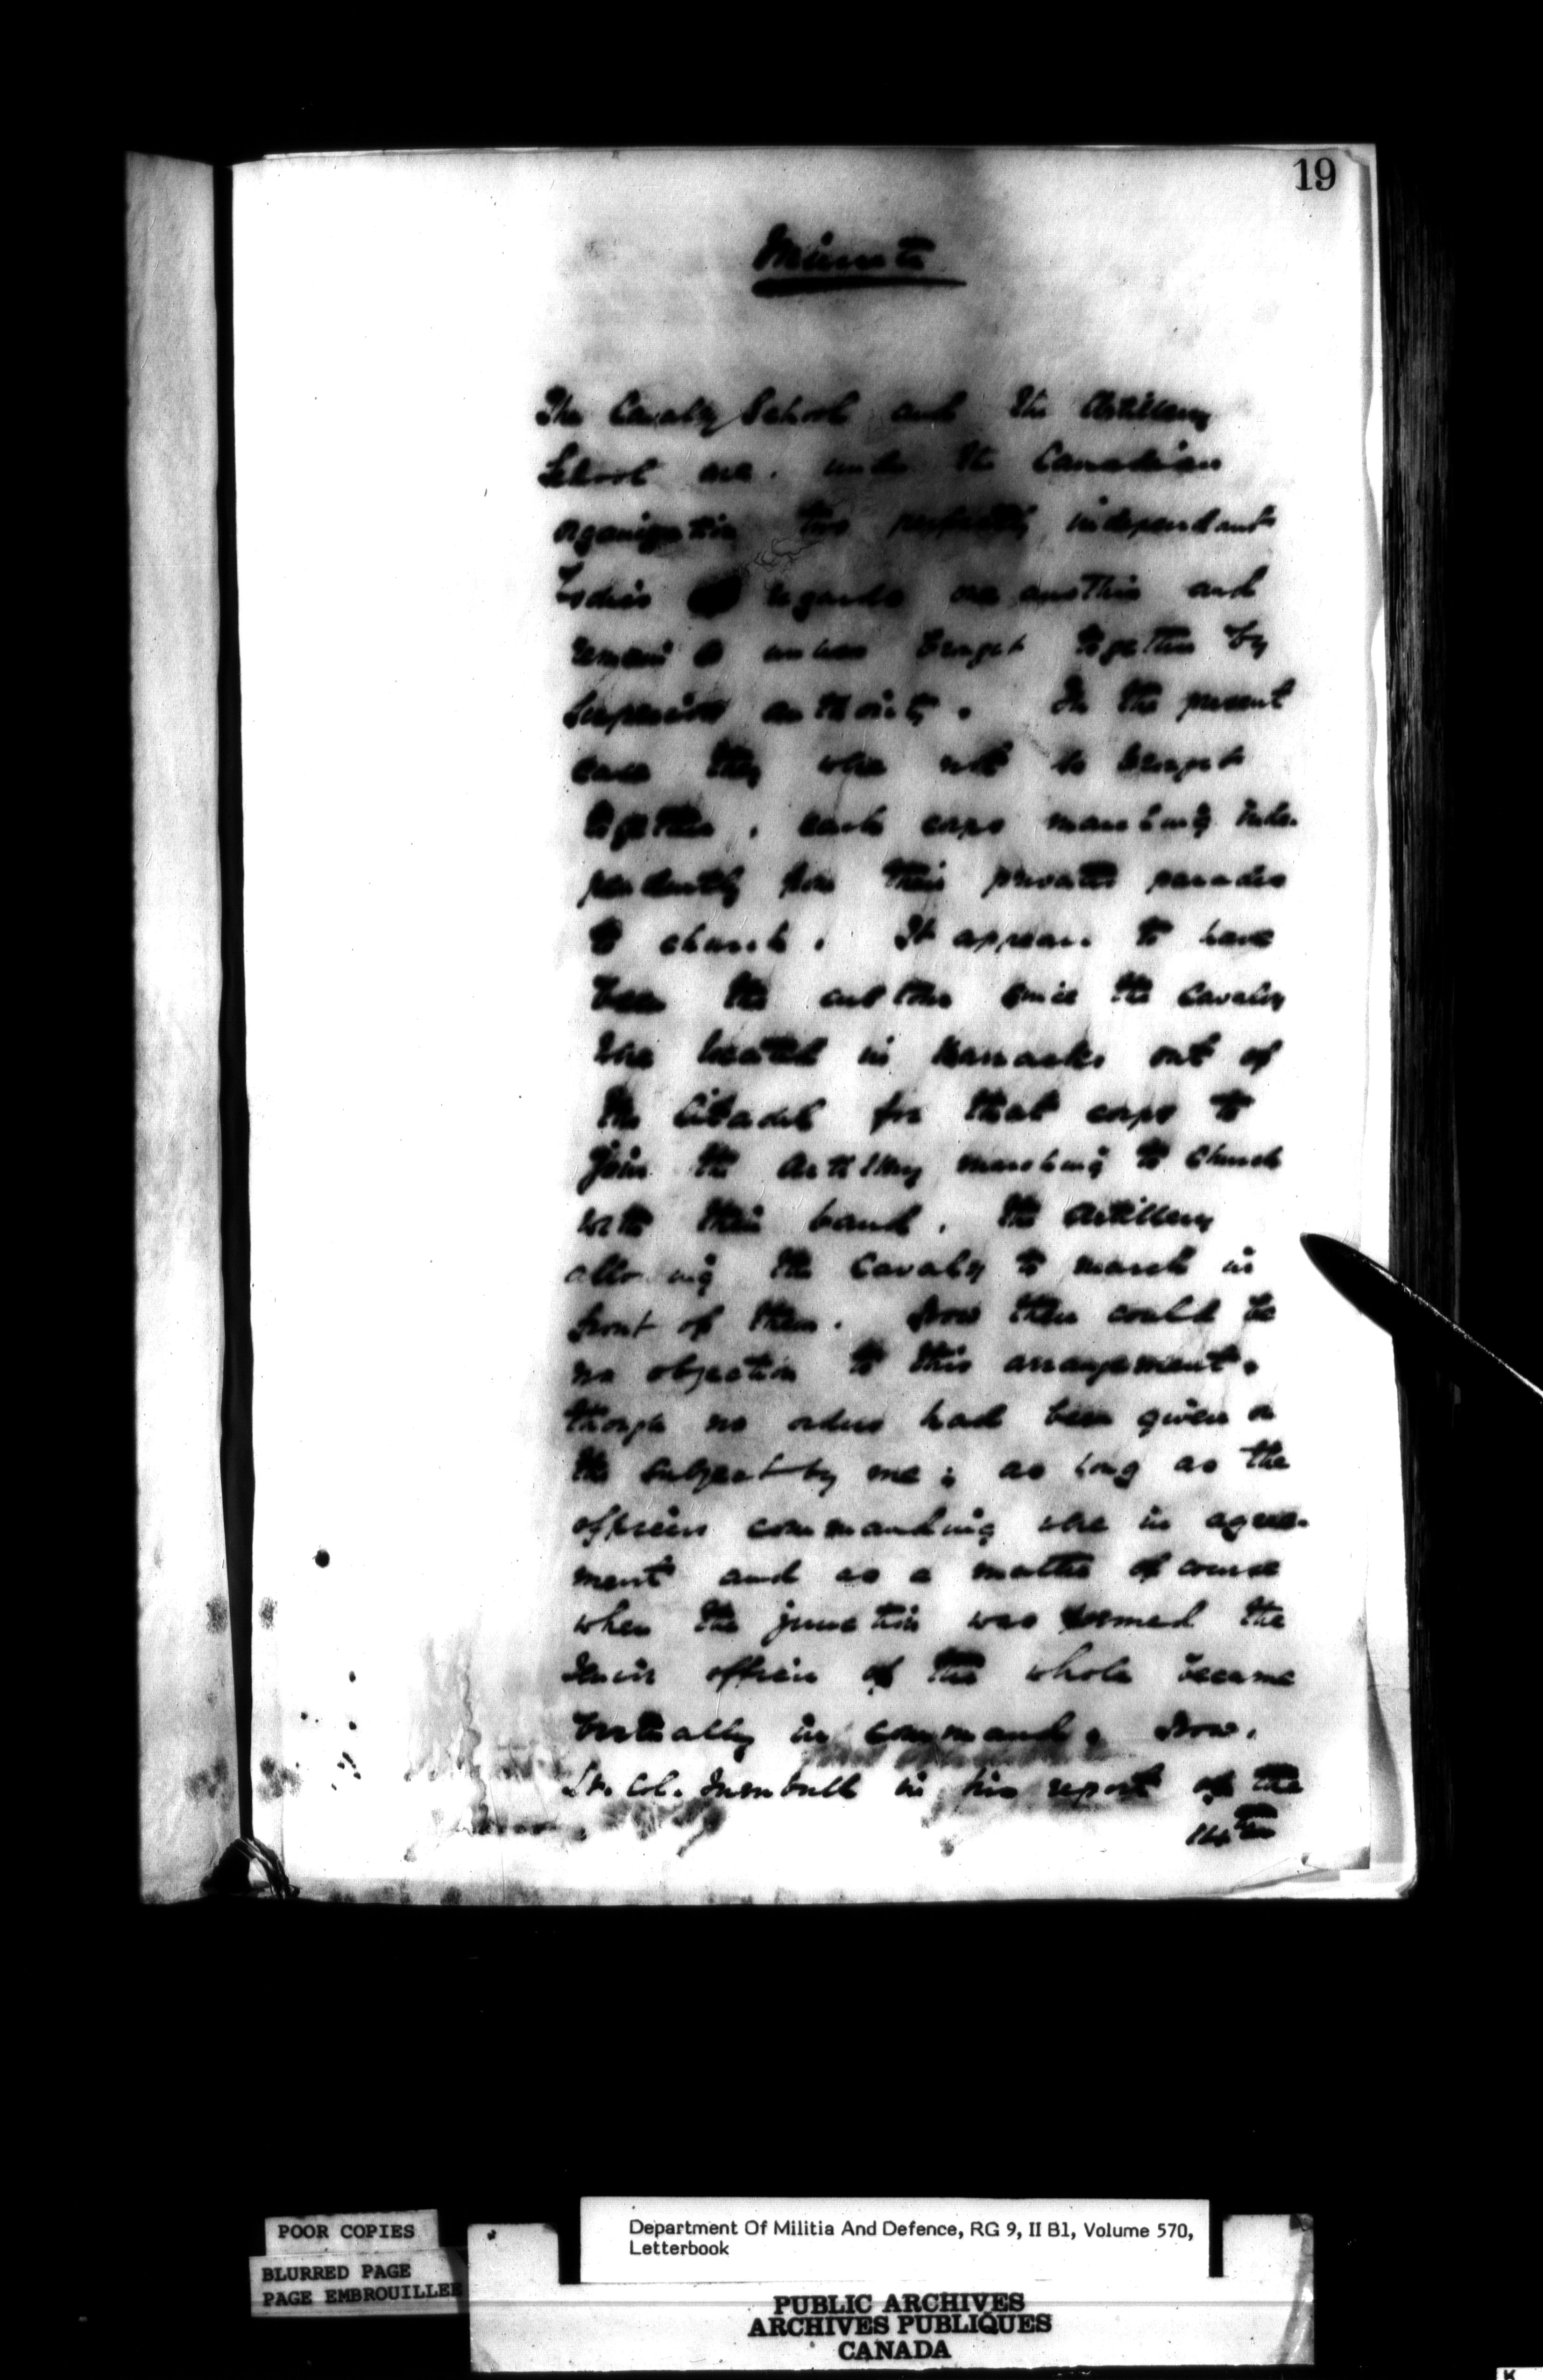 19
Minute
The Cavalry School and the Artillery
School are. under the Canadian
organization two perfectly independant
bodies regards one another and
remain so unless brought together by
superior authority. In the present
case they were not so brought
together, each corps marching inde-
pendently from their private parades
to church. It appears to have
been the custom since the Cavalry
were located in Barracks out of
the Citadel for that corps to
join the Artillery marching to church
with their band, the Artillery
allowing the Cavalry to march in
front of them. Now there could be
no objection to this arrangement,
though no orders had been given on
the subject by me; as long as the
officers commanding were in agree-
ment and as a matter of course
when the junction was formed the
senior officer of the whole became
virtually in command. Now,
Lt. Col. Turnbull in his report of the
14th
POOR COPIES
BLURRED PAGE
PAGE EMBROUILLEE
Department Of Militia And Defence, RG 9, II B1, Volume 570,
Letterbook
PUBLIC ARCHIVES
ARCHIVES PUBLIQUES
CANADA